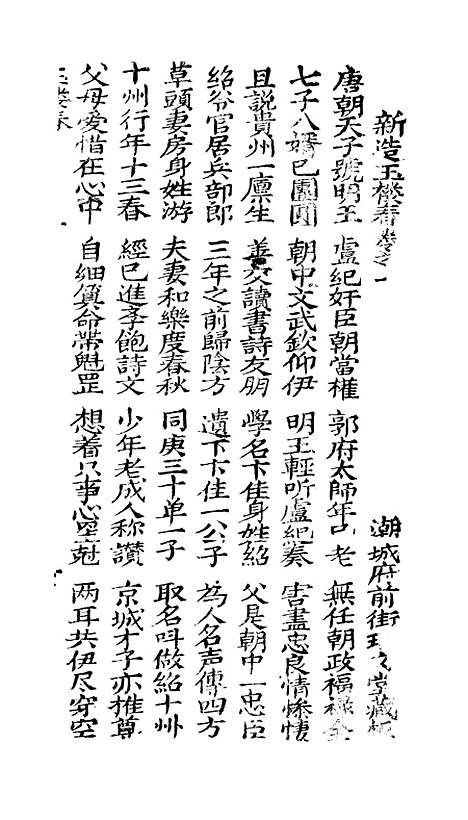 新造玉樓春卷之一 潮城府前街瑞文堂藏板
唐朝天子號明王 盧紀奸臣朝當權 郭府太師年已老 無任朝政福祿全
七子八婿已團圓 朝中文武欽仰伊 明王輕听盧紀奏 害盡忠良情慘悽
且說貴州一廪生 善交讀書詩友朋 學名卞隹身姓紹 父是朝中一忠臣
紹爷官居兵部郎 三年之前歸陰方 遺下卞隹一公子 為人名声傳四方
草頭妻房身姓游 夫妻和樂度春秋 同庚三十单一子 取名叫做紹十州
十州行年十三春 經已進李飽詩文 少年老成人称讚 京城才子亦推尊
父母愛惜在心中 自细算命帶魁罡 想着只事心里尅 两耳共伊尽穿空
玉樓春